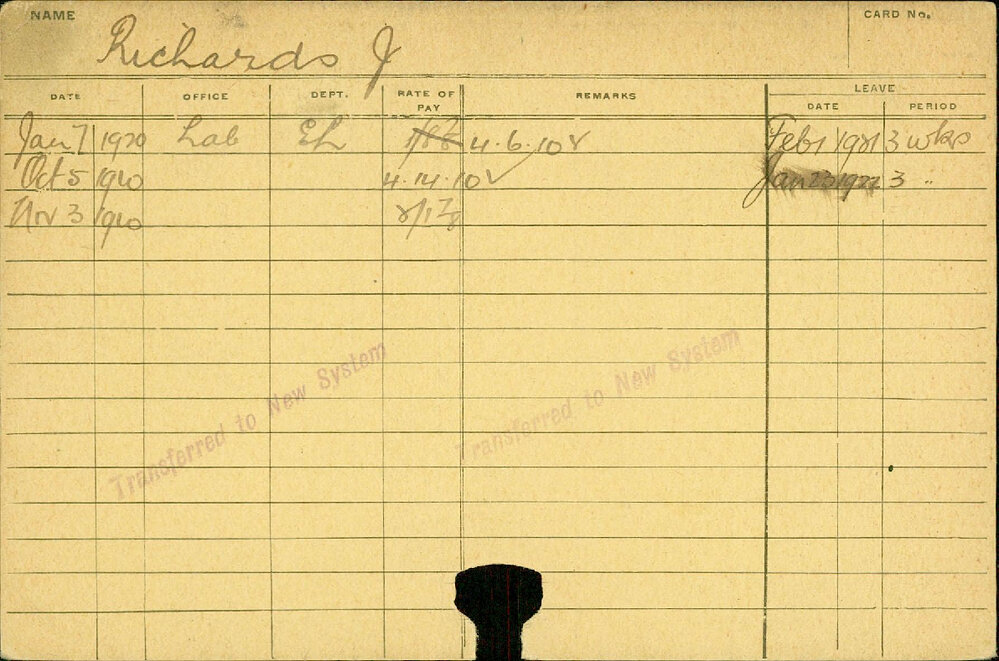 NAME
CARD No.
Richards J
LEAVE
DATE OFFICE DEPT. RATE OF PAY REMARKS DATE PERIOD
Jan 7 1920 Lab Eh 4.6.10 Feb 1 1921 3 wks
Oct 5 1920 4.14.10 Jan 23 1922 3 "
Nov 3 1920
Transferred to New System
Transferred to New System